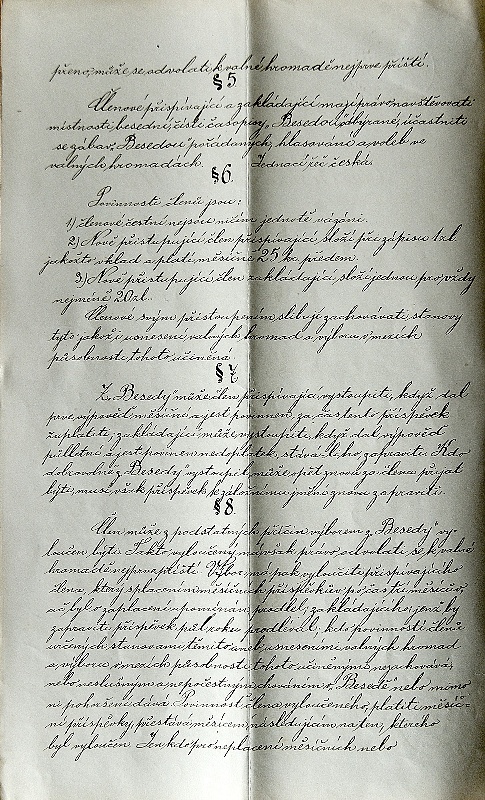 přeno, může se odvolati k valné hromadě nejprve příští.
§ 5.
Členové přispívající a zakládající mají právo navštěvovati
místnosti besední, čísti časopisy „Besedou“ odbýrané, účastniti
se zábav „Besedou“ pořádaných, hlasování a voleb ve
valných hromadách. Jednací řeč česká.
§ 6.
Povinnosti členů jsou:
1) členové čestní nejsou ničím jednotě vázáni.
2) Nově přistupující člen přispívající složí při zápisu 1 zl.
jakožto vklad a platí měsíčně 25 kr. předem.
3) Nově přistupující člen zakládající, složí jednou pro vždy
nejméně 20 zl.
Členové svým přistoupením slibují zachovávati stanovy
tyto jakož i usnesení valných hromad a výboru v mezích
působnosti tohoto učiněná.
§ 7.
Z „Besedy“ může člen přispívající vystoupiti, když dal
prve výpověď měsíční a jest povinnen, za čas tento příspěvek
zaplatiti, zakládající může vystoupiti, když dal výpověď
půlletní a jest povinen nedoplatek, stává-li ho, zapraviti. Kdo
dobrovolně z „Besedy“ vystoupil, může opět znovu za člena přijat
býti, musí však příspěvek k založnímu jmění znovu zapraviti.
§ 8.
Člen může z podstatných příčin výborem z „Besedy“ vy-
loučen býti. Takto vyloučený má však právo odvolati se k valné
hromadě nejprve příští. Výbor má pak vyloučiti přispívajícího
člena, který splacením měsíčních příspěvků v počas tří měsíců,
ač byl o zaplacení upomínán prodlel, zakládajícího, jenž by
zapraviti příspěvek půl roku prodléval; kdo povinností členů
určených stanovami těmito aneb usnesením valných hromad
a výboru v mezích působnosti tohoto učiněnými nezachovává,
nebo neslušným a nepočestným chováním v „Besedě“ nebo mimo
ni pohoršení dává. Povinnost člena vyloučeného, platiti měsíč-
ní příspěvky, přestává měsícem následujícím na ten, kterého
byl vyloučen. Ten kdo pro neplacení měsíčních nebo